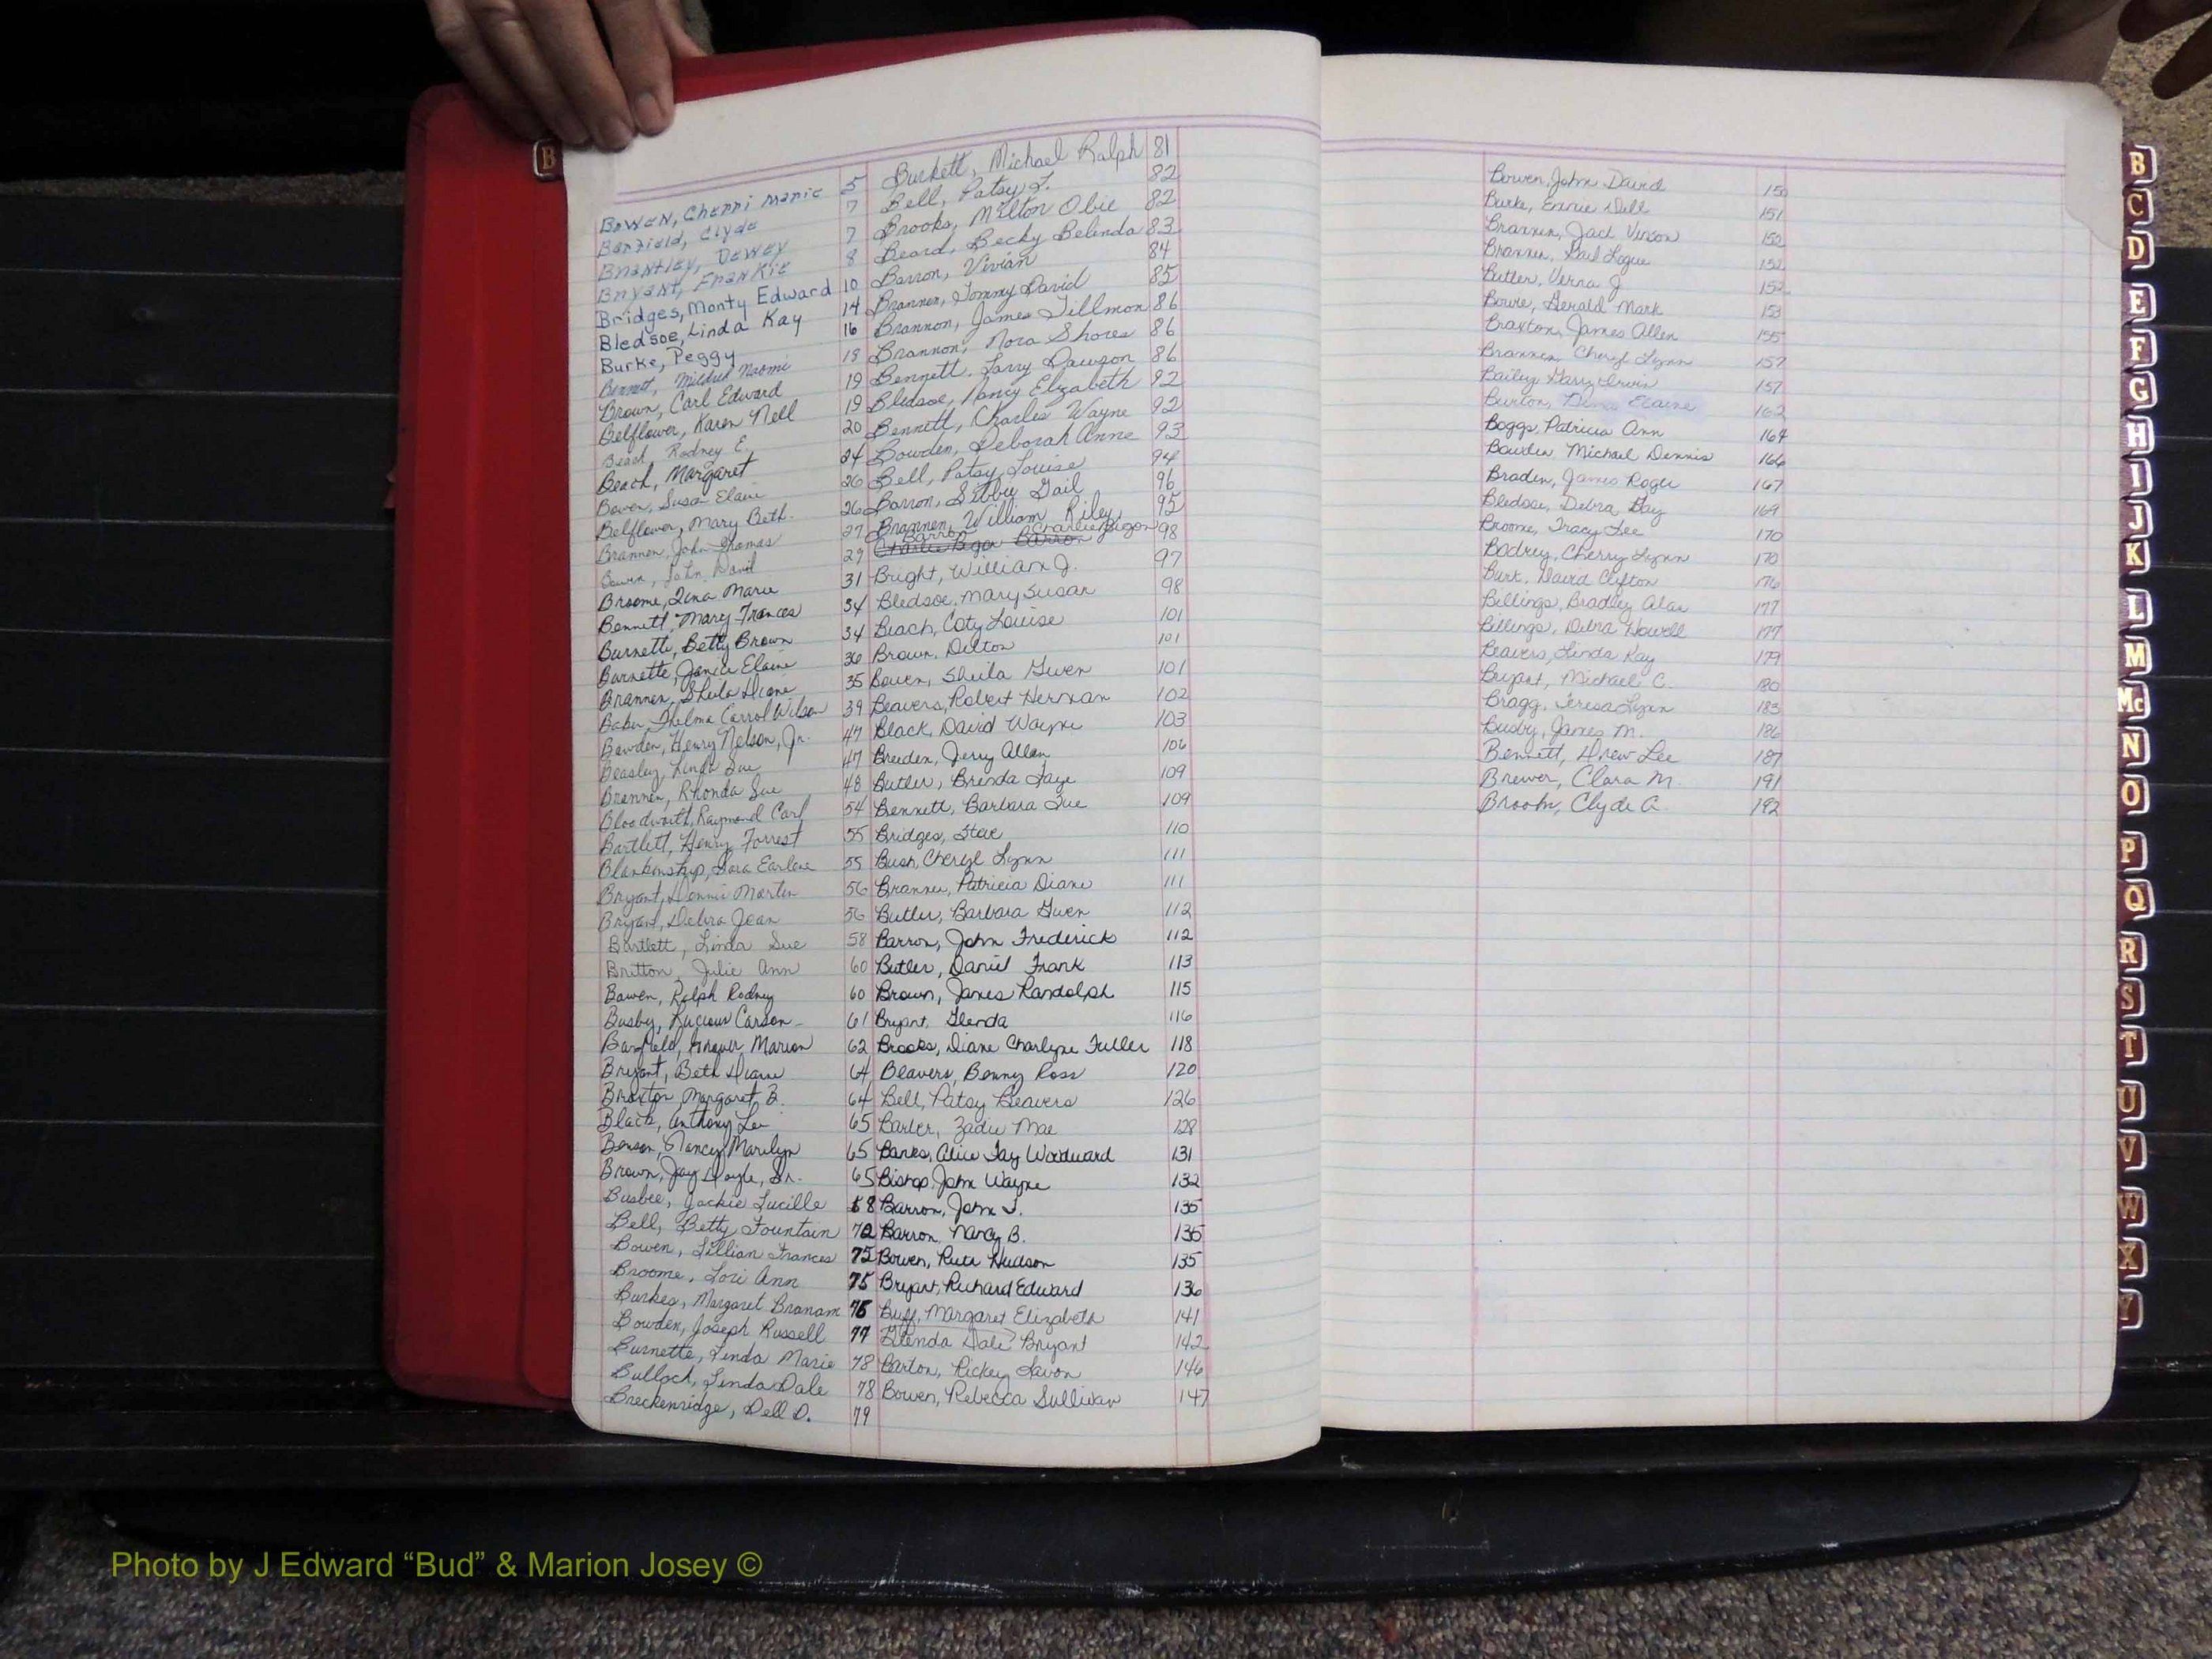 B
Bowen, Cherri Marie 5
Barfield, Clyde 7
Brantley, Dewey 7
Bryant, Frankie 8
Bridges, Monty Edward 10
Bledsoe, Linda Kay 14
Burke, Peggy 16
Bennett, Mildred Naomi 18
Brown, Carl Edward 19
Belflower, Karen Nell 19
Beach, Rodney E. 20
Beach, Margaret 24
Bowen, Susan Elaine 26
Belflower, Mary Beth 26
Brannen, John Thomas 27
Bowen, John David 29
Broome, Tina Marie 31
Bennett, Mary Frances 34
Burnette, Betty Brown 34
Burnette, Janice Elaine 36
Brannen, Sheila Diane 35
Baber, Thelma Carrol Wilson 39
Bowden, Henry Nelson, Jr. 47
Beasley, Linda Sue 47
Brannen, Rhonda Sue 48
Bloodworth, Raymond Carl 54
Bartlett, Henry Forrest 55
Blankenship, Sara Earlene 55
Bryant, Donnie Martin 56
Bryant, Debra Jean 56
Bartlett, Linda Sue 58
Britton, Julie Ann 60
Bowen, Ralph Rodney 60
Busby, Lucious Carson 61
Barfield, Marion 62
Bryant, Beth Diane 64
Braxton, Margaret B. 64
Black, Anthony Lee 65
Benson, Nancy Marilyn 65
Brown, Jay Doyle, Sr. 65
Busbee, Jackie Lucille 68
Bell, Betty Fountain 72
Bowen, Lillian Frances 75
Broome, Lori Ann 75
Burkes, Margaret Branam 76
Bowden, Joseph Russell 77
Burnette, Linda Marie 78
Bullock, Linda Dale 78
Breckenridge, Dell D. 79
Burkett, Michael Ralph 81
Bell, Patsy L. 82
Brooks, Milton Obie 82
Beard, Becky Belinda 83
Barron, Vivian 84
Brannen, Tommy David 85
Brannon, James Tillmon 86
Brannon, Nora Shores 86
Bennett, Larry Dawson 86
Bledsoe, Nancy Elizabeth 92
Bennett, Charles Wayne 92
Bowden, Deborah Anne 93
Bell, Patsy Louise 94
Barron, Sibbie Gail 96
Brannen, William Riley 95
Barron Charlie 98
Bright, William J. 97
Bledsoe, Mary Susan 98
Beach, Coty Louise 101
Brown, Delton 101
Bowen, Sheila Gwen 101
Beavers, Robert Herman 102
Black, David Wayne 103
Breeden, Jerry Allen 106
Butler, Brenda Faye 109
Bennett, Barbara Sue 109
Bridges, Steve 110
Bush, Cheryl Lynn 111
Brannen, Patricia Diane 111
Butler, Barbara Gwen 112
Barron, John Frederick 112
Butler, Daniel Frank 113
Brown, James Randolph 115
Bryant, Glenda 116
Brooks, Diane Charlyne Fuller 118
Beavers, Benny Ross 120
Bell, Patsy Beavers 126
Barler, Zadie Mae 128
Banks, Alice Fay Woodward 131
Bishop, John Wayne 132
Barron, John J. 135
Barron, Nancy B. 135
Bowen, Ruth Hudson 135
Bryant, Richard Edward 136
Buff, Margaret Elizabeth 141
Glenda Dale Bryant 142
Barton, Rickey Lavon 146
Bowen, Rebecca Sullivan 147
Bowen, John David 150
Burke, Ennie Dell 151
Brannen, Jack Vinson 152
Brannen, Gail Logue 152
Butler, Verna J. 152
Bowie, Gerald Mark 153
Braxton, James Allen 155
Brannen, Cheryl Lynn 157
Bailey, Garry Irvin 157
Burton, Elaine 162
Boggs, Patricia Ann 164
Bowden, Michael Dennis 166
Braden, James Roger 167
Bledsoe, Debra Gay 169
Broome, Tracy Lee 170
Bodrey, Cherry Lynn 170
Burk, David Clifton 176
Billings, Bradley Alan 177
Billings, Debra Howell 177
Beavers, Linda Kay 179
Bryant, Michael C. 180
Bragg, Teresa Lynn 183
Busby, James M. 186
Bennett, Drew Lee 187
Brewer, Clara M. 191
Brooks, Clyde A. 192
B
C
D
E
F
G
H
I
J
K
L
M
Mc
N
O
P
Q
R
S
T
U
V
W
X
Y
Photo by J Edward “Bud” & Marion Josey ©